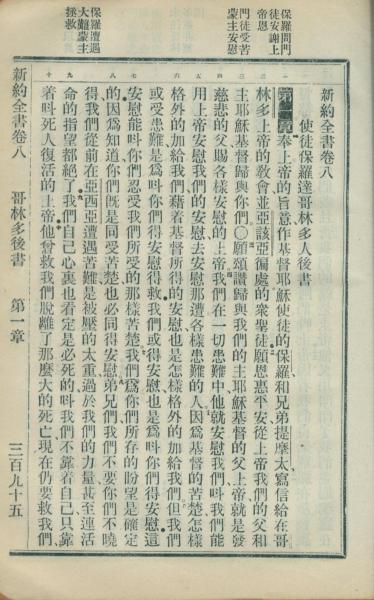 保羅問門
徒安謝上
帝恩
門徒受苦
蒙主安慰
保羅遭遇
大難蒙主
拯救
新約全書卷八
使徒保羅達哥林多人後書
第一章
奉上帝的旨意作基督耶穌使徒的保羅和兄弟提摩太寫信給在哥
林多上帝的教會並亞該亞徧處的衆聖徒願恩惠平安從上帝我們的父和
主耶穌基督歸與你們〇願頌讚歸與我們的主耶穌基督的父上帝就是發
慈悲的父賜各樣安慰的上帝我們在一切患難中他就安慰我們呌我們能
用上帝安慰我們的安慰去安慰那遭各樣患難的人因爲基督的苦楚怎樣
格外的加給我們藉着基督所得的安慰也是怎樣格外的加給我們但我們
或受患難是爲呌你們得安慰得救我們或得安慰也是爲呌你們得安慰這
安慰能呌你們忍受我們所受的那樣苦楚我們爲你們所存的盼望是確定
的因爲知道你們旣是同受苦楚也必同得安慰弟兄們我們不要你們不曉
得我們從前在亞西亞遭遇苦難是被壓的太重過於我們的力量甚至連活
命的指望都絕了我們自己心裏也看定是必死的呌我們不靠着自己只靠
着呌死人復活的上帝他曾救我們脫離了那麼大的死亡現在仍要救我們
一
二
三
四
五
六
七
八
九
十
新約全書卷八
哥林多後書
第一章
三百九十五